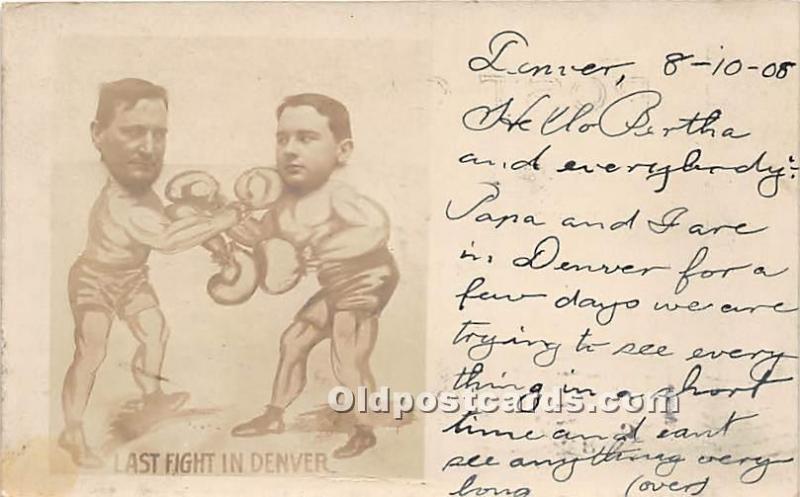 Denver, 8-10-08
Hello Bertha
and everybody:-
Papa and I are
in Denver for a
few days we are
trying to see every
thing in a short
time and cant
see anything very
long (over)
LAST FIGHT IN DENVER
Oldpostcards.com